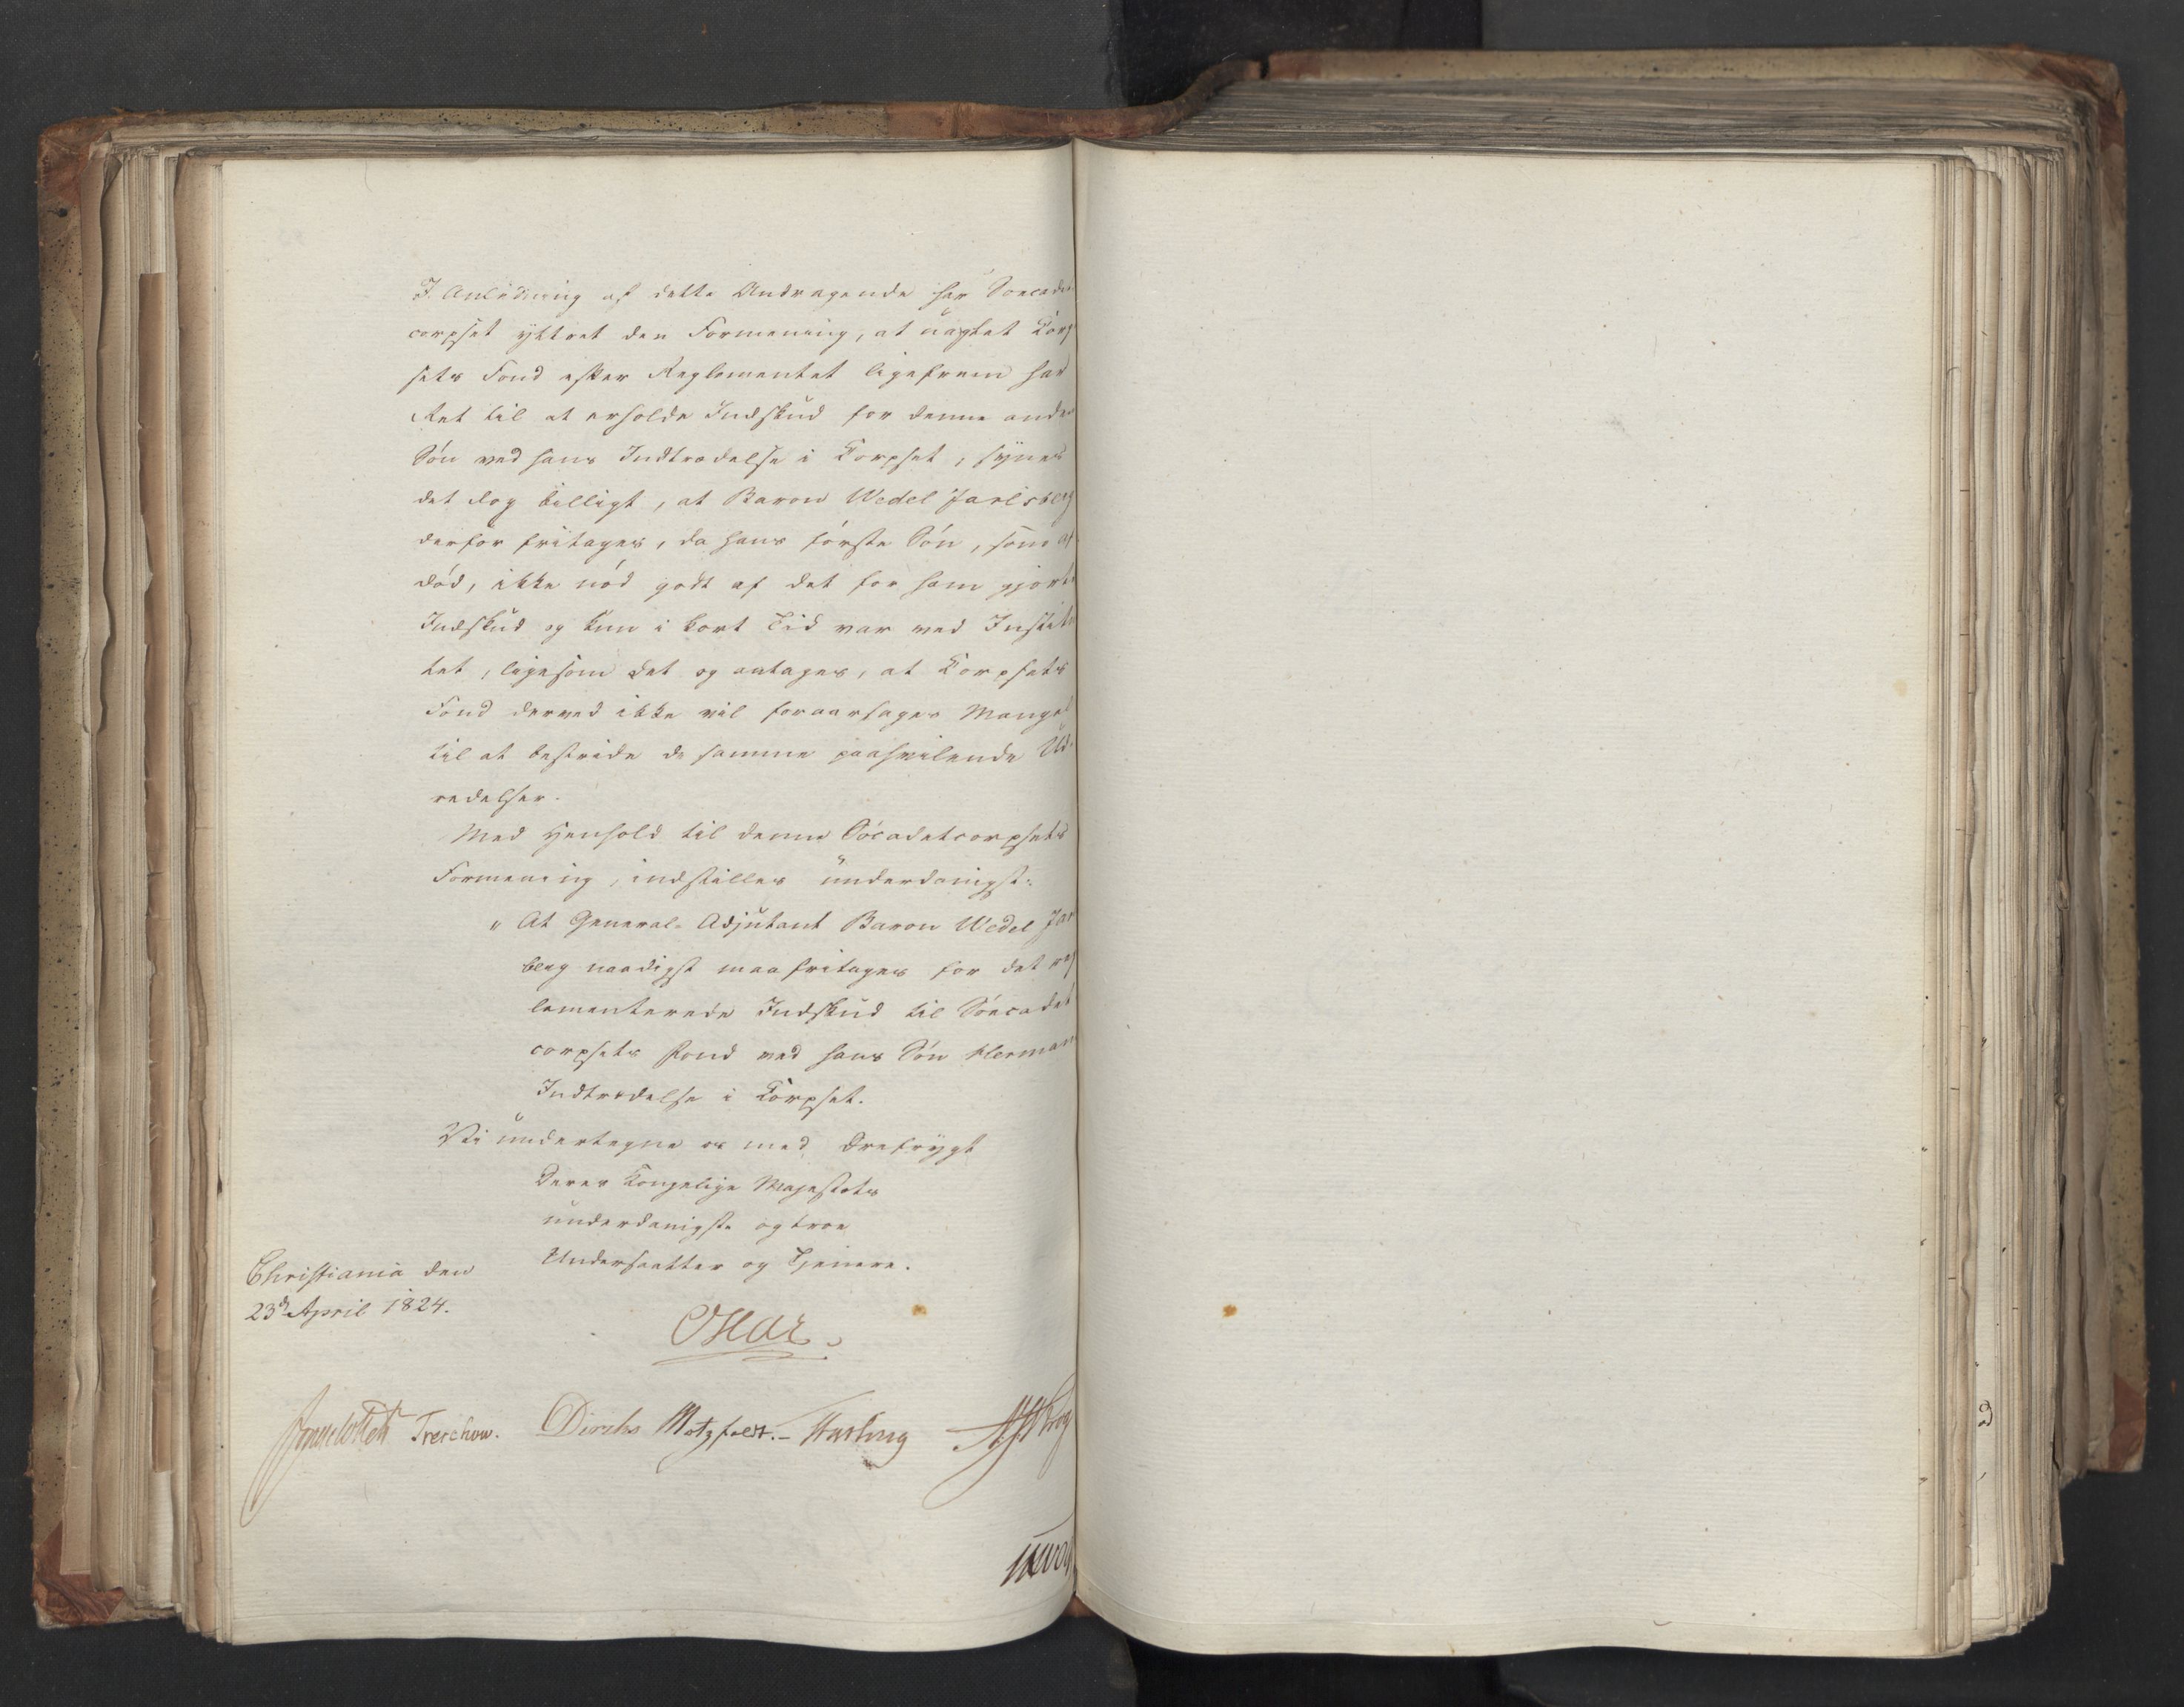 I Anledning af dette Andragende har Söecadet
corpset yttret den Formening, at uagtet Korp
sets Fond efter Reglementet ligefrem har
Ret til at erholde Indskud for denne anden
Sön ved hans Indtrædelse i Korpset, synes
det dog billigt, at Baron Wedel Jarlsberg
derfor fritages, da hans förste Sön, som af
död, ikke nöd godt af det for ham gjorte
Indskud og kun i kort Tid var ved Institu
tet, ligesom det og antages, at Korpsets
Fond derved ikke vil foraarsages Mangel
til at bestride de samme paahvilende Ud-
redelser.
Med Henhold til denne Söcadetcorpsets
Formening, indstilles underdanigst:
" At General-Adjutant Baron Wedel Jarls
berg naadigst maa fritages for det reg
lementerede Indskud til Söecadet
corpsets Fond ved hans Sön Herman
Indtrædelse i Korpset.
Vi undertegne os med Ærefrygt
Deres Kongelige Majestæts
underdanigste og troe
Undersaatter og Tjenere.
Christiania den
23d April 1824.
Oscar.
Treschow. Diriks Motzfeldt.- Fasting